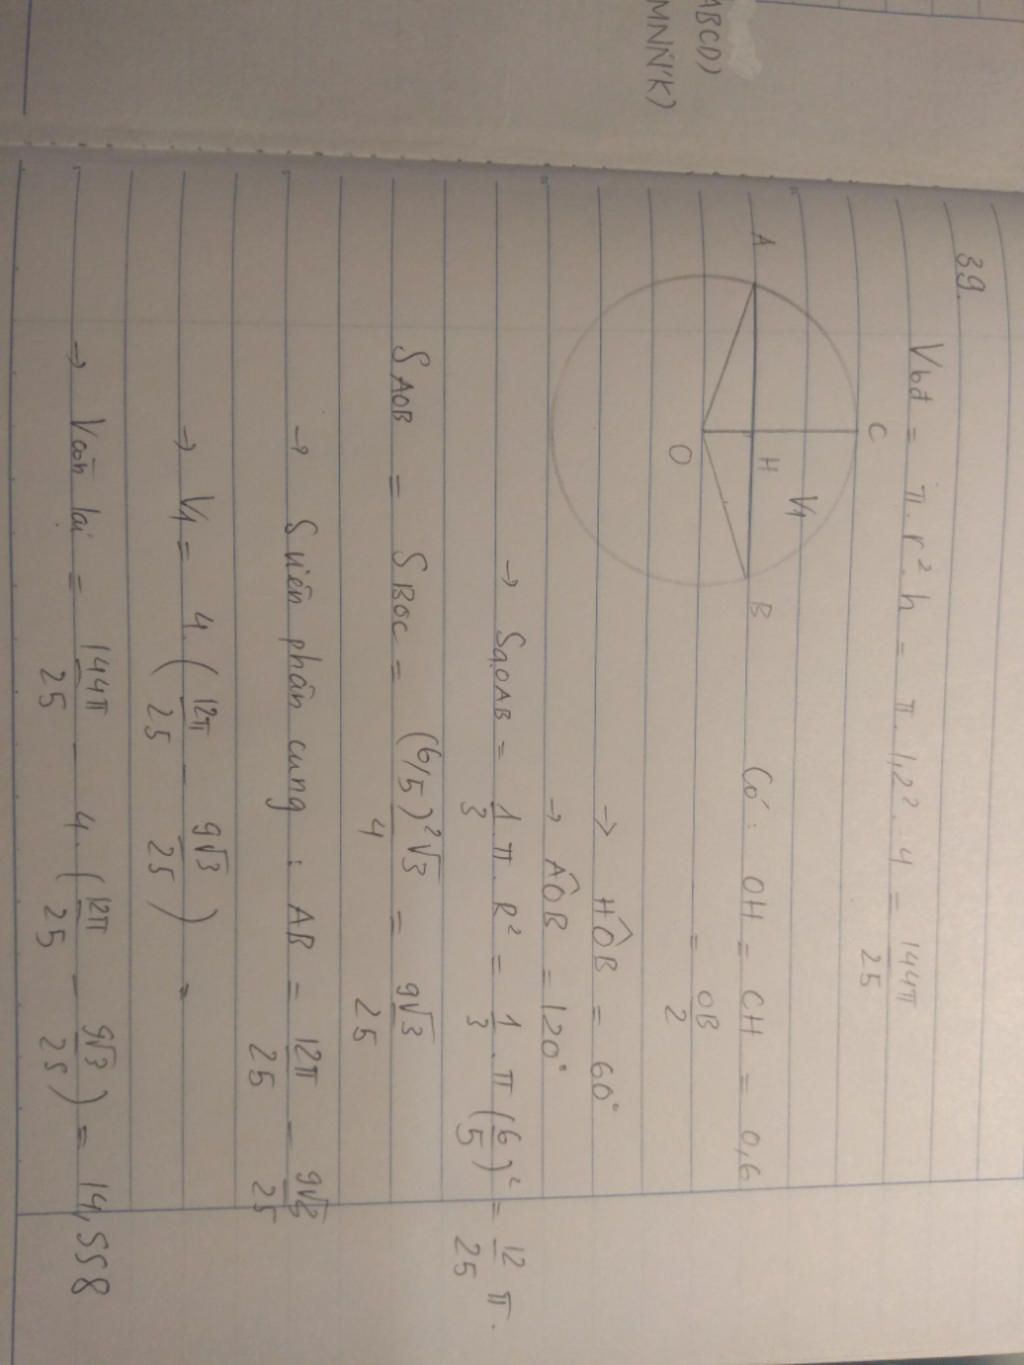 ABCD)
MNN'K)
39.
Vbđ = π.r².h = π.1,2².4 = 144π/25
C
A H V1 B
O
Có: OH = CH = 0,6
= OB/2
→ HÔB = 60°
→ AÔB = 120°
→ SqOAB = 1/3 π.R² = 1/3.π(6/5)² = 12/25 π.
SAOB = SBOC = (6/5)²√3/4 = 9√3/25
→ S viên phân cung : AB = 12π/25 - 9√3/25
→ V1 = 4.(12π/25 - 9√3/25)
→ Vcòn lại = 144π/25 - 4.(12π/25 - 9√3/25) = 14,558